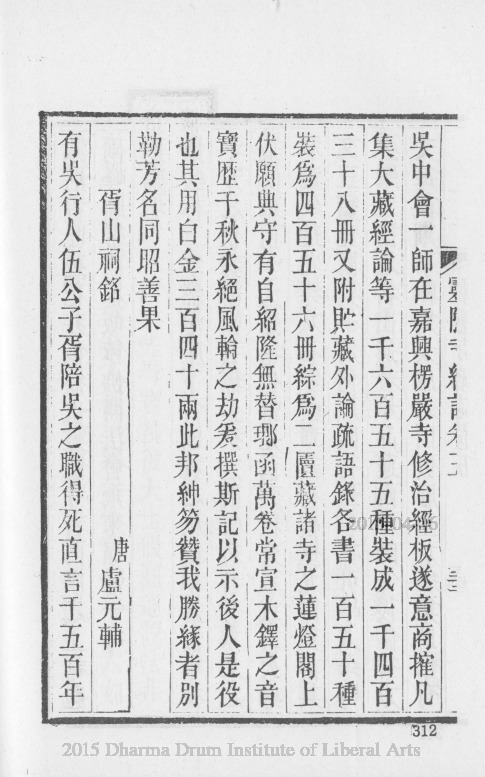 靈隱寺續誌卷二
吳中會一師在嘉興楞嚴寺修治經板遂意商搉凡
集大藏經論等一千六百五十五種裝成一千四百
三十八冊又附貯藏外論疏語錄各書一百五十種
裝爲四百五十六冊綜爲二匱藏諸寺之蓮燈閣上
伏願典守有自紹隆無替瑯函萬卷常宣木鐸之音
寶歷千秋永絕風輪之劫爰撰斯記以示後人是役
也其用白金三百四十兩此邦紳笏贊我勝緣者別
勒芳名同昭善果
胥山祠銘
唐盧元輔
有吳行人伍公子胥陪吳之職得死直言千五百年
312
2015 Dharma Drum Institute of Liberal Arts